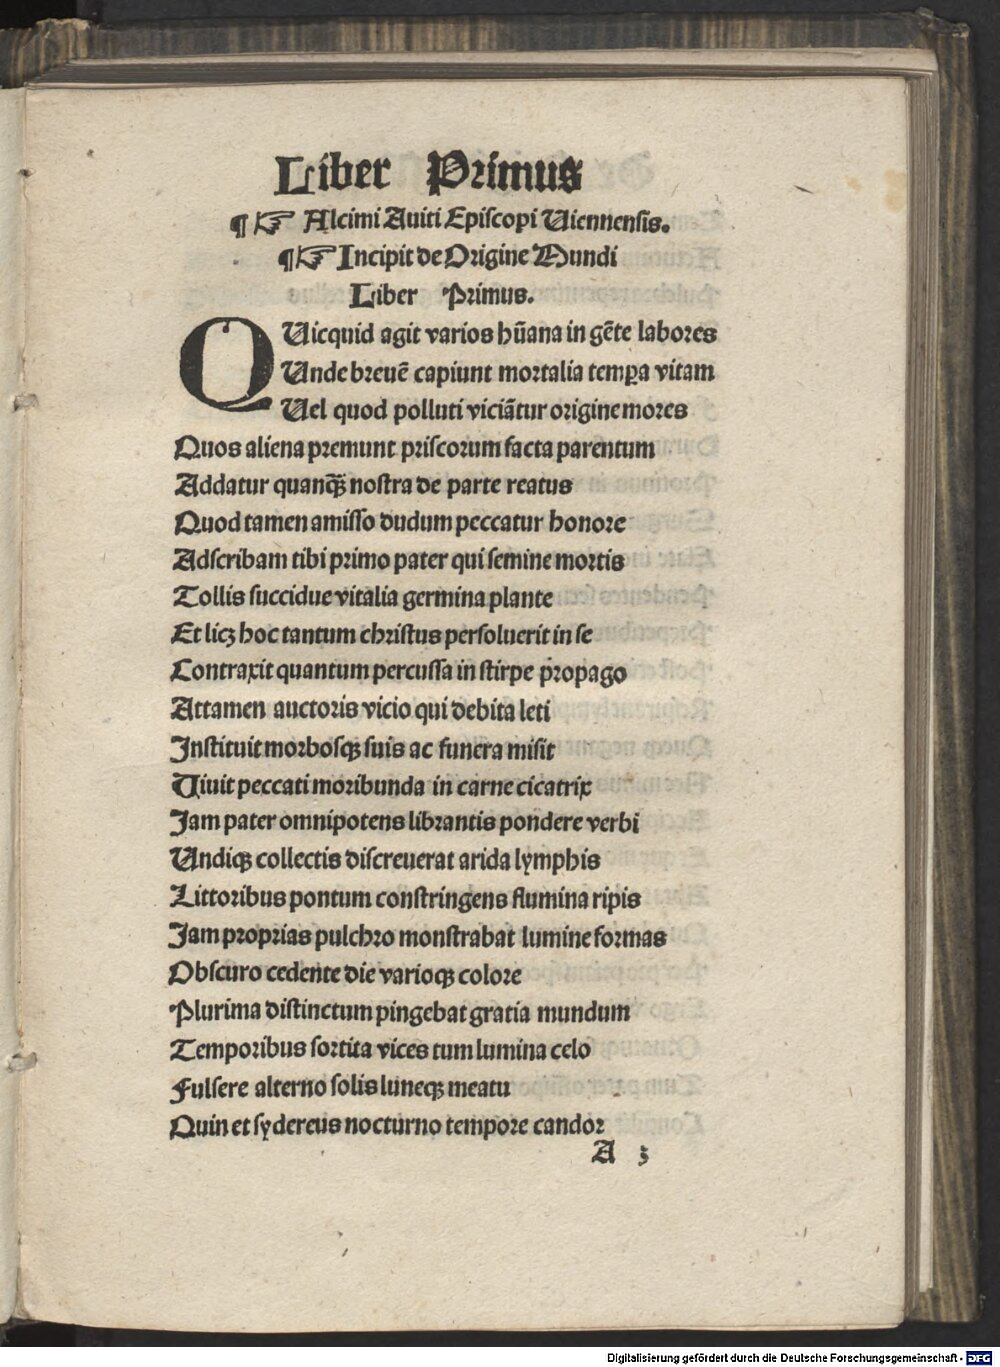 Liber Primus
¶ ☞ Alcimi Aviti Episcopi Uiennensis.
¶ ☞ Incipit de Origine Mundi
Liber Primus.
QUicquid agit varios hūana in gēte labores
Unde breuē capiunt mortalia tempꝑa vitam
Uel quod polluti viciātur origine mores
Quos aliena premunt priscorum facta parentum
Addatur quanꝙ̄ nostra de parte reatus
Quod tamen amisso dudum peccatur honore
Adscribam tibi primo pater qui semine mortis
Tollis succidue vitalia germina plante
Et licꝫ hoc tantum christus persoluerit in se
Contraxit quantum percussa in stirpe propago
Attamen auctoris vicio qui debita leti
Instituit morbosqꝫ suis ac funera misit
Uiuit peccati moribunda in carne cicatrix
Jam pater omnipotens librantis pondere verbi
Undiqꝫ collectis discreuerat arida lymphis
Littoribus pontum constringens flumina ripis
Jam proprias pulchro monstrabat lumine formas
Obscuro cedente die varioqꝫ colore
Plurima distinctum pingebat gratia mundum
Temporibus sortita vices tum lumina celo
Fulsere alterno solis luneqꝫ meatu
Quin et sydereus nocturno tempore candor
A 3
Digitalisierung gefördert durch die Deutsche Forschungsgemeinschaft - DFG